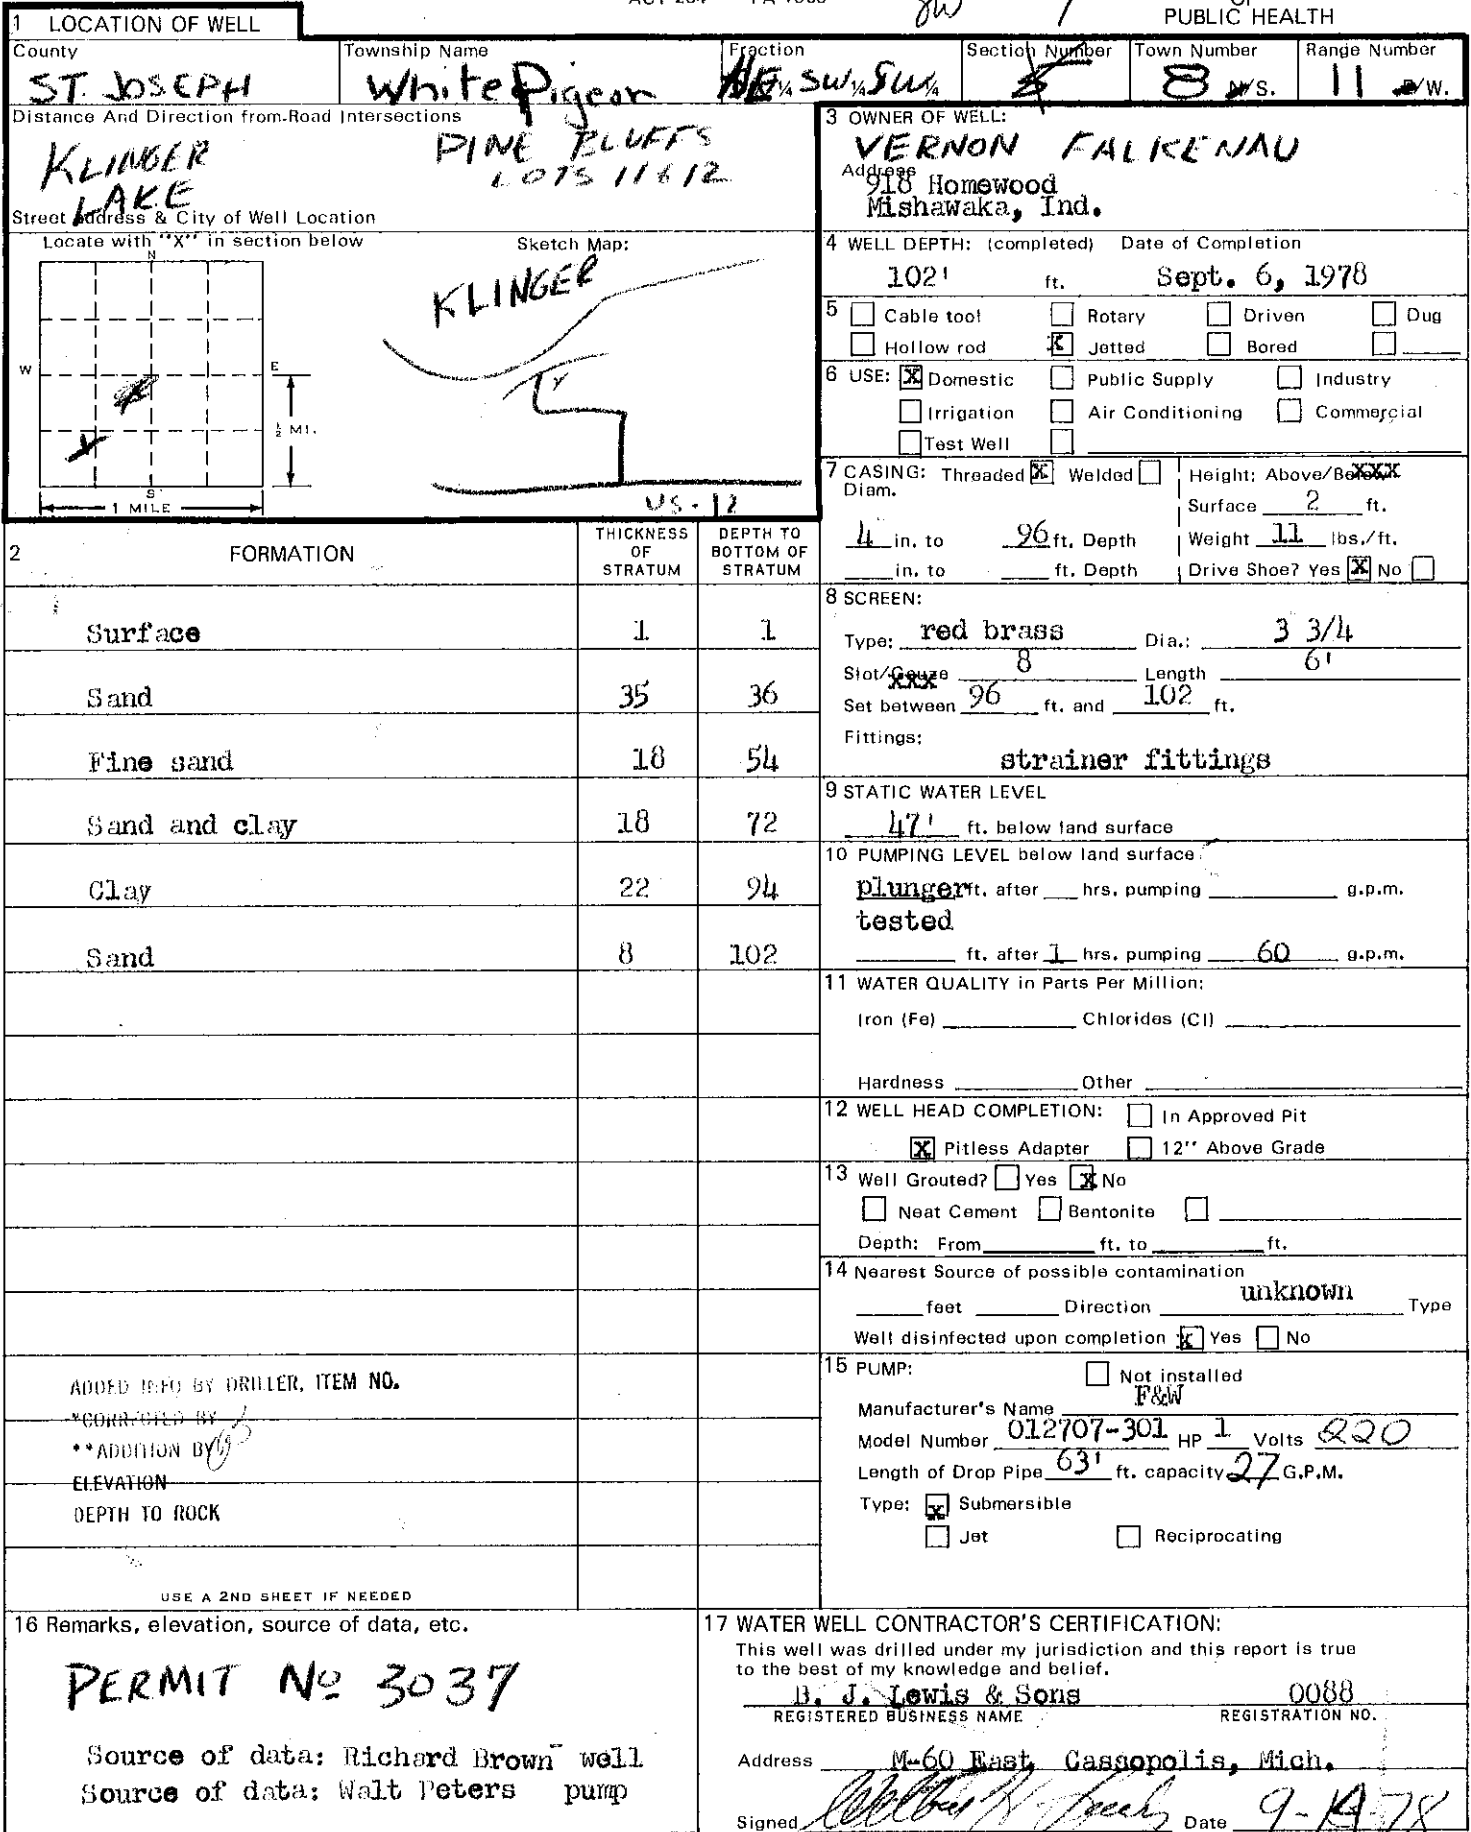 OF
PUBLIC HEALTH
1 LOCATION OF WELL
County
ST. JOSEPH
Township Name
White Pigeon
Fraction
NE 1/4 SW 1/4 SW 1/4
Section Number
Town Number
8 N/S.
Range Number
11 E/W.
Distance And Direction from Road Intersections
KLINGER
LAKE
PINE BLUFFS
LOTS 11 & 12
Street Address & City of Well Location
Locate with "X" in section below
Sketch Map:
N
W
E
S
1/2 MI.
1 MILE
KLINGER
US-12
3 OWNER OF WELL:
VERNON FALKENAU
Address
918 Homewood
Mishawaka, Ind.
4 WELL DEPTH: (completed) Date of Completion
102' ft. Sept. 6, 1978
5 Cable tool Rotary Driven Dug
Hollow rod X Jetted Bored
6 USE: X Domestic Public Supply Industry
Irrigation Air Conditioning Commercial
Test Well
7 CASING: Threaded X Welded Height: Above/Below XXX
Diam.
Surface 2 ft.
4 in. to 96 ft. Depth Weight 11 lbs./ft.
in. to ft. Depth Drive Shoe? Yes X No
2 FORMATION THICKNESS OF STRATUM DEPTH TO BOTTOM OF STRATUM
Surface 1 1
Sand 35 36
Fine sand 18 54
Sand and clay 18 72
Clay 22 94
Sand 8 102
8 SCREEN:
Type: red brass Dia.: 3 3/4
Slot/Gauze XXX 8 Length 6'
Set between 96 ft. and 102 ft.
Fittings:
strainer fittings
9 STATIC WATER LEVEL
47' ft. below land surface
10 PUMPING LEVEL below land surface
plunger ft. after hrs. pumping g.p.m.
tested
ft. after 1 hrs. pumping 60 g.p.m.
11 WATER QUALITY in Parts Per Million:
Iron (Fe) Chlorides (Cl)
Hardness Other
12 WELL HEAD COMPLETION: In Approved Pit
X Pitless Adapter 12'' Above Grade
13 Well Grouted? Yes X No
Neat Cement Bentonite
Depth: From ft. to ft.
14 Nearest Source of possible contamination
feet Direction unknown Type
Well disinfected upon completion X Yes No
15 PUMP: Not installed
Manufacturer's Name F&W
Model Number 012707-301 HP 1 Volts 220
Length of Drop Pipe 63' ft. capacity 27 G.P.M.
Type: X Submersible
Jet Reciprocating
ADDED INFO BY DRILLER, ITEM NO.
*CORRECTED BY
**ADDITION BY
ELEVATION
DEPTH TO ROCK
USE A 2ND SHEET IF NEEDED
16 Remarks, elevation, source of data, etc.
PERMIT No 3037
Source of data: Richard Brown well
Source of data: Walt Peters pump
17 WATER WELL CONTRACTOR'S CERTIFICATION:
This well was drilled under my jurisdiction and this report is true
to the best of my knowledge and belief.
B. J. Lewis & Sons 0088
REGISTERED BUSINESS NAME REGISTRATION NO.
Address M-60 East, Cassopolis, Mich.
Signed Date 9-14-78